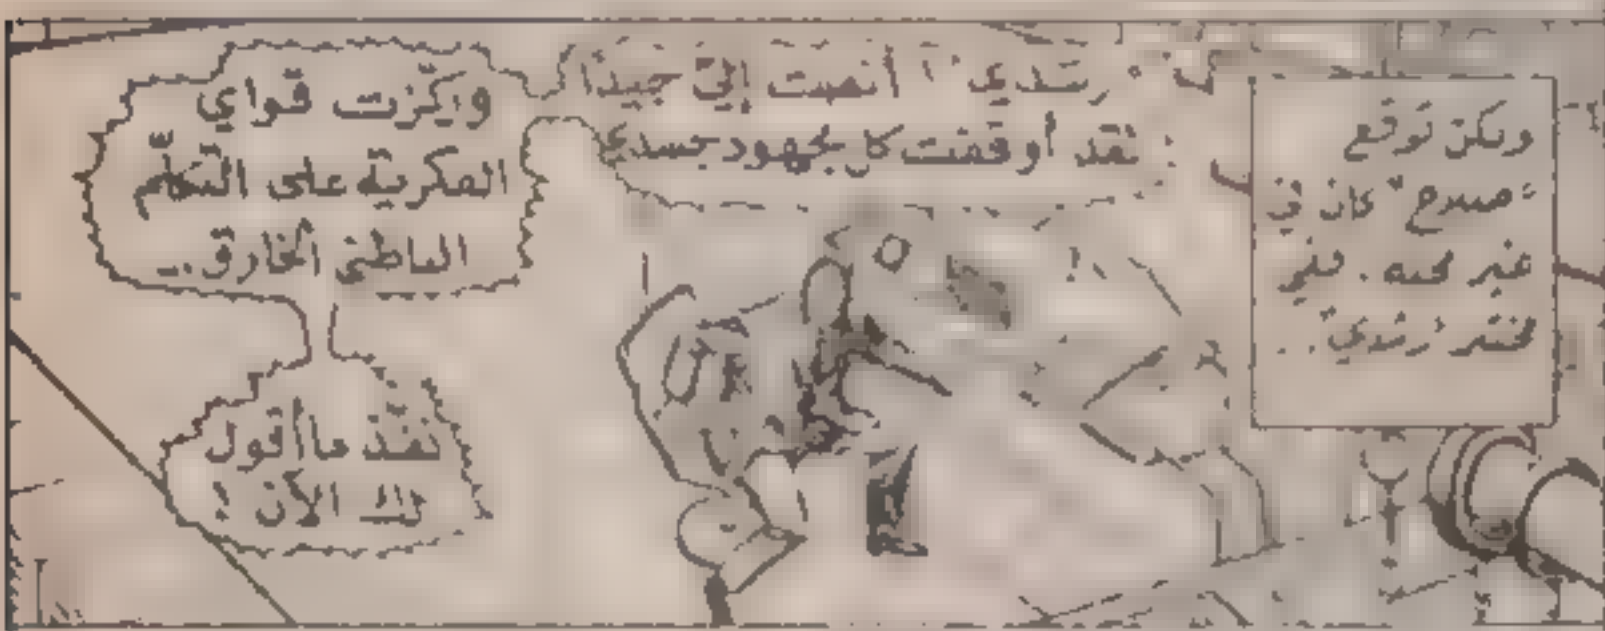 ولكن توقع
"صلاح" كان في
غير محله. فلم
يختف "رشدي"..
"رشدي"! أنصت إليّ جيدًا
لقد أوقفت كل مجهود جسدي
وركّزت قواي
الفكرية على التكلّم
الباطني الخارق..
نفّذ ما أقول
لك الآن!